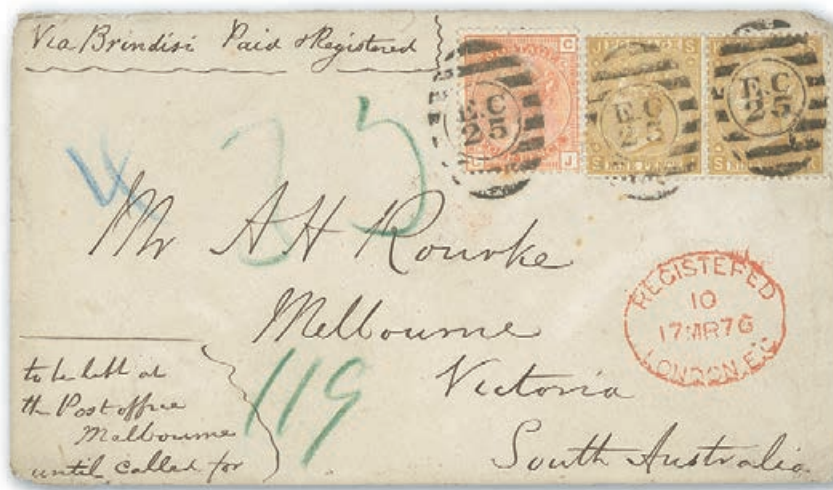 Via Brindisi Paid & Registered
E.C
25
E.C
25
E.C
25
33
Mr A H Rourke
Melbourne
Victoria
South Australia
REGISTERED
10
17 MR 76
LONDON.E.C
119
to be left at
the Post office
Melbourne
until called for